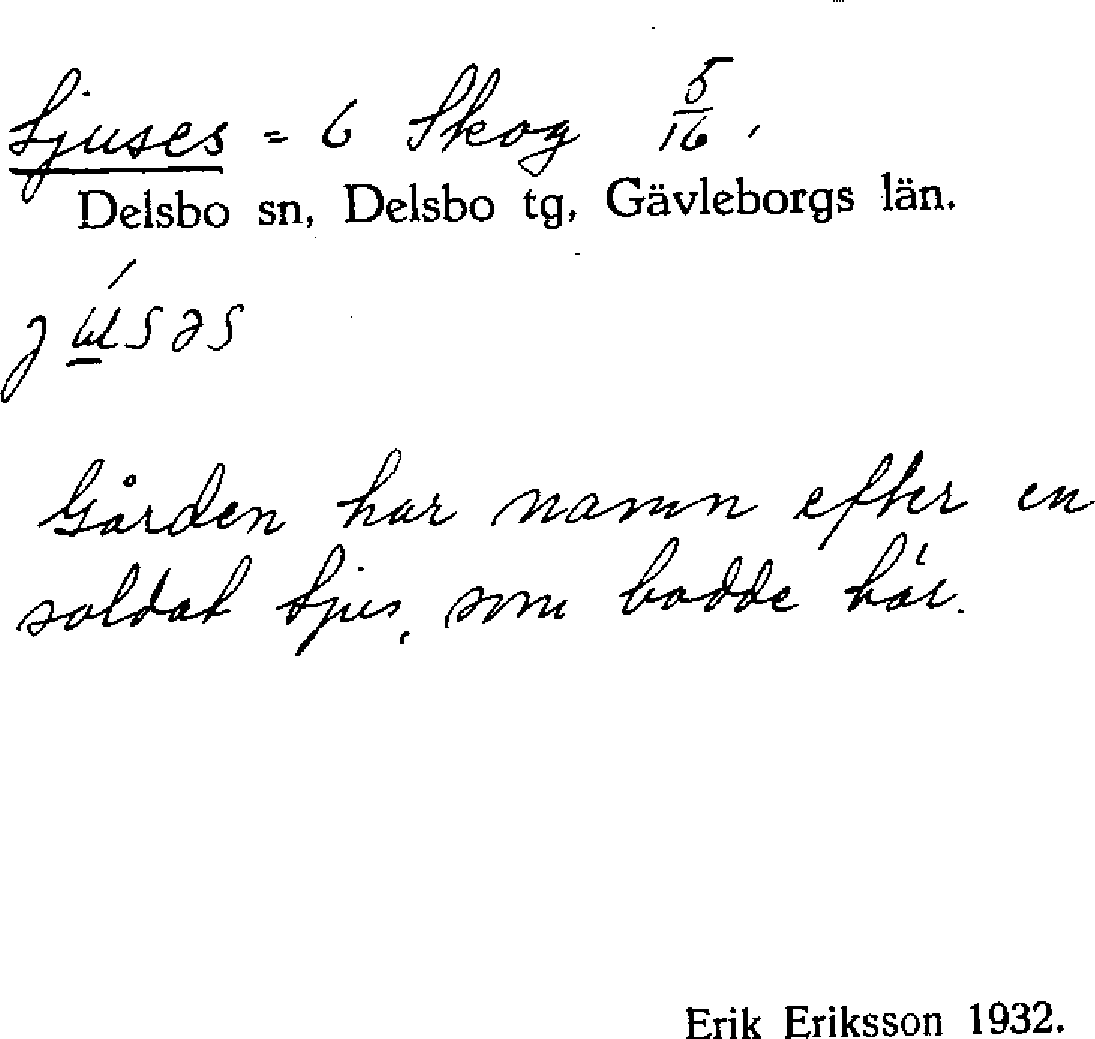 Ljuses = 6 Skog 5/16.
Delsbo sn, Delsbo tg, Gävleborgs län.
Gården har namn efter en
soldat Ljus, som bodde här.
Erik Eriksson 1932.